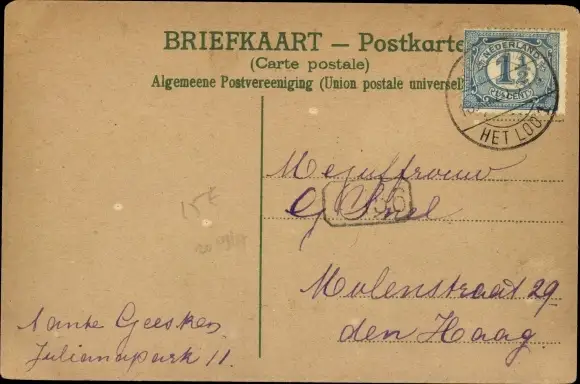 BRIEFKAART — Postkarte
(Carte postale)
Algemeene Postvereeniging (Union postale universell
NEDERLAND
1½
CENT
HET LOO
Mejuffrouw
G. Snel
Molenstraat 29
den Haag.
15
Tante Geesken
Julianapark 11.